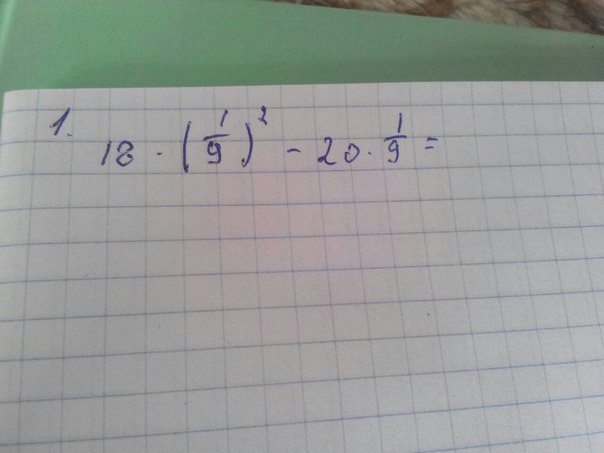 1.
18 · (1/9)² - 20 · 1/9 =